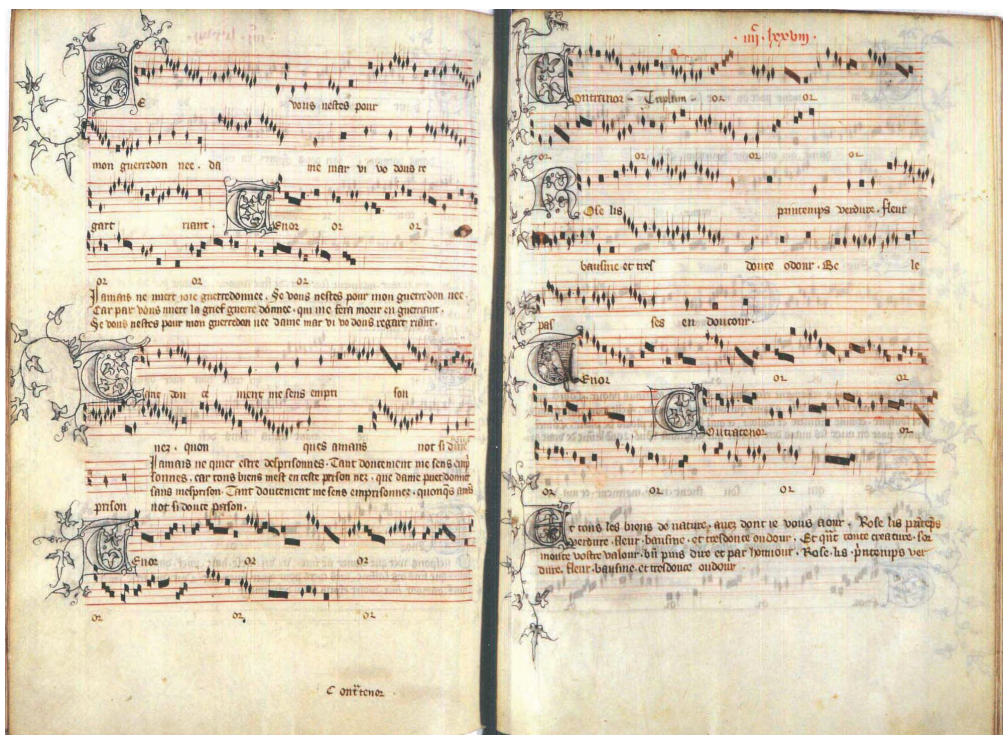 Se vous nestes pour
mon guerredon nee. da me mar vi vo dous re
gart riant. Tenor or or
or or or
Jamais ne miert ioie guerredonnee. Se vous nestes pour mon guerredon nee.
Car par vous miert la grief guerre donnee. qui me fera morir en guerriant.
Se vous nestes pour mon guerredon nee dame mar vi vo dous regart riant.
Tant dou ce ment me sens empri son
nez. quon ques amans not si dure
Jamais ne quier estre desprisonnes. Tant doucement me sens emp
sonnes. car tous biens mest en ceste prison nez. que dame puet donner
sans mesprison. Tant doucement me sens emprisonnez. quonqs amās
prison not si douce prison.
Tenor or or
or or or
Conttenor.
iiij. lxxviij.
Contratenor - Triplum - or or
or or or or
Rose lis printemps verdure. fleur
bausme et tres douce odour. Be le
pas ses en doucour.
Tenor or or
Contratenor or
or or or
Et tous les biens de nature. avez dont ie vous aour. Rose lis printeps
verdure. fleur. bausme. et tresdouce oudour. Et que toute creature. sor
monte vostre valour. bn puis dire et par honnour. Rose. lis. printemps ver
dure. fleur. bausme. et tresdouce oudour.